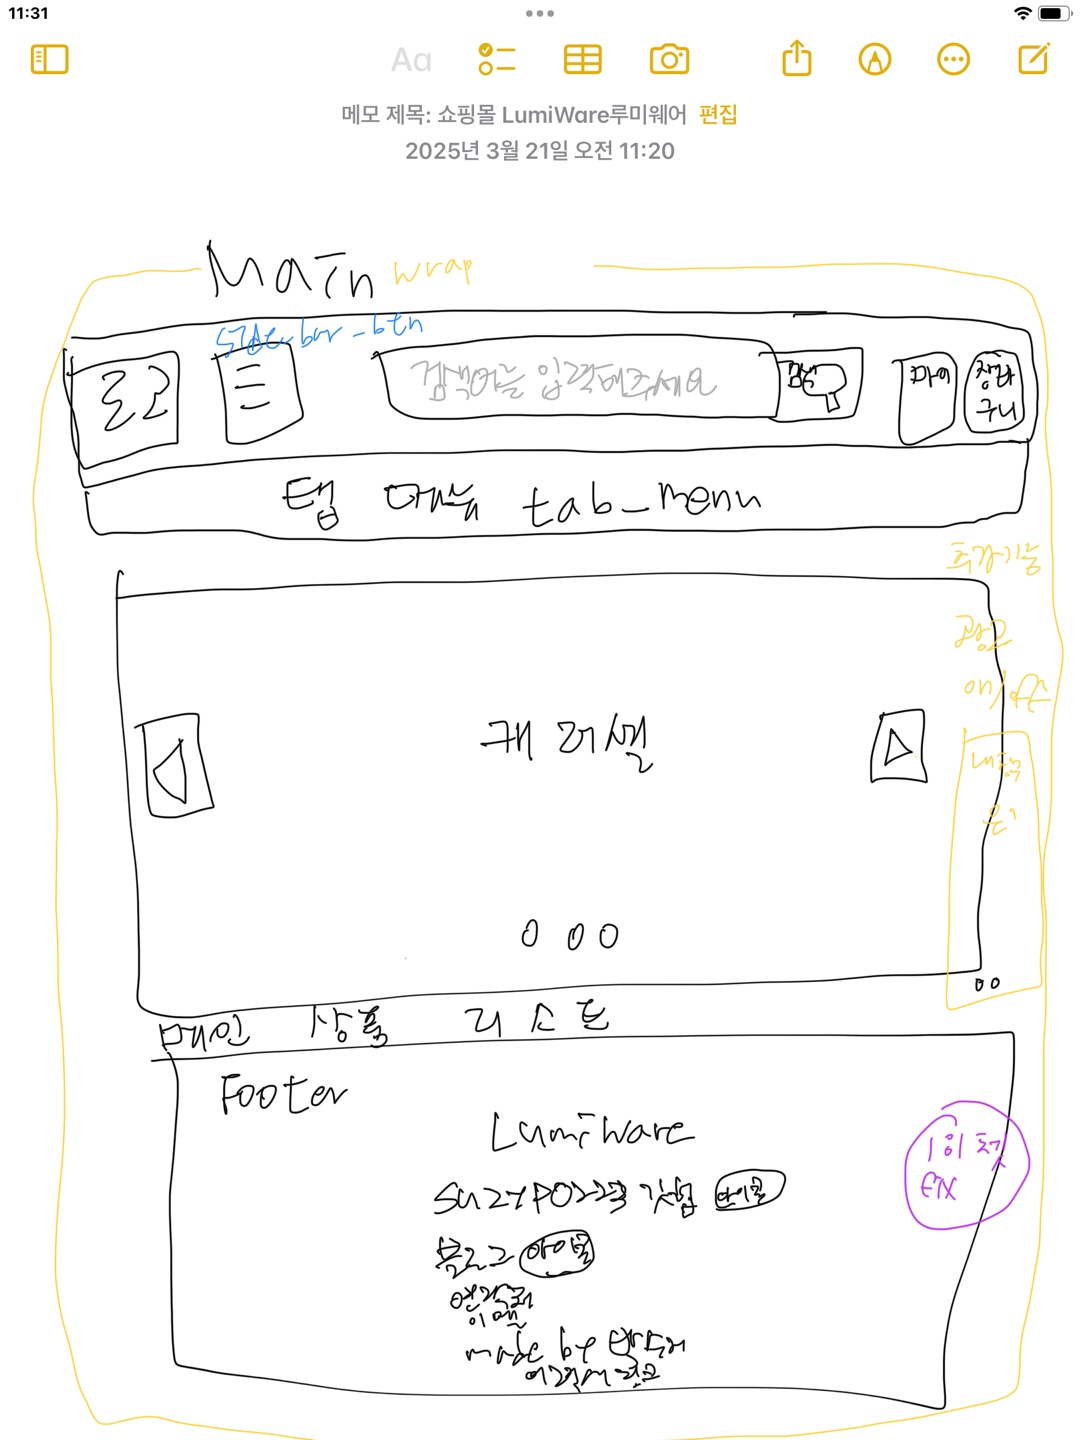 11:31
Aa
메모 제목: 쇼핑몰 LumiWare루미웨어 편집
2025년 3월 21일 오전 11:20
Main wrap
side_bar_btn
로고
검색어를 입력해주세요
검색
마이
장바
구니
탭 메뉴 tab_menu
추가기능
광고
캐러셀
메인 상품 리스트
Footer
LumiWare
깃헙 아이콘
블로그 아이콘
연락처
이메일
made by
1:1 챗
FIX